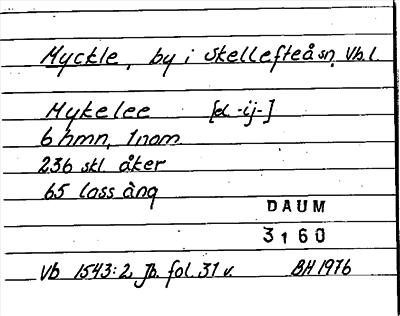 Myckle, by i Skellefteå sn, Vb. l.
Mykelee [el. -ij-]
6 hmn, 1 nam
236 skl. åker
65 lass äng
DAUM
3160
Vb 1543:2 Jb. fol. 31 v. BH 1976